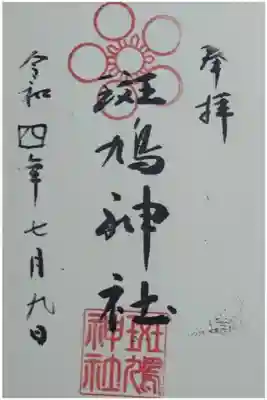 奉拝
斑鳩神社
斑鳩
神社
令和四年七月九日